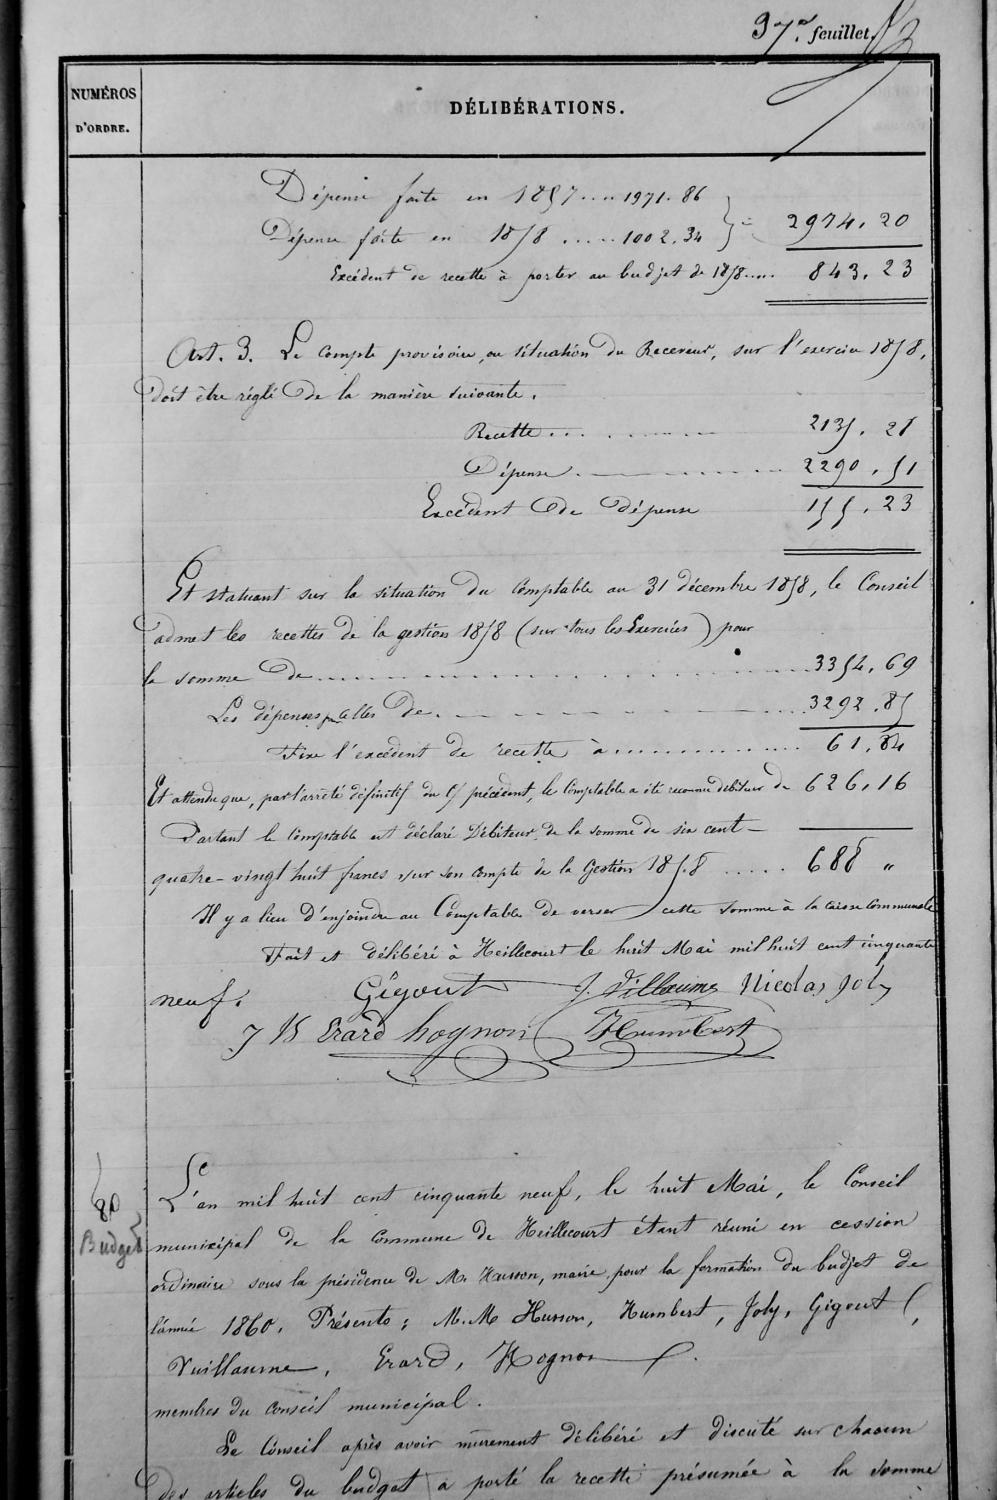 37e feuillet.
NUMÉROS
D'ORDRE.
DÉLIBÉRATIONS.
Dépense faite en 1857.... 1971.86
Dépense faite en 1858 ..... 1002.34 } = 2974.20
Excédent de recette à porter au budjet de 1858..... 843.23
Art. 3. Le compte provisoire, ou situation du Receveur, sur l'exercice 1858,
doit être réglé de la manière suivante.
Recette... 2135.28
Dépense. 2290.51
Excédent de dépense 155.23
Et statuant sur la situation du Comptable au 31 décembre 1858, le Conseil
admet les recettes de la gestion 1858 (sur tous les Exercices) pour
la somme de... 3354.69
Les dépenses pr celles de... 3292.85
Fixe l'excédent de recette à... 61.84
Et attendu que, par l'arrêté définitif du Cte précédent, le Comptable a été reconnu débiteur de 626.16
Partant le Comptable est déclaré Débiteur de la somme de six cent-
quatre-vingt huit francs sur son compte de la Gestion 1858 ..... 688 "
Il y a lieu d'enjoindre au Comptable de verser cette somme à la caisse Communale
Fait et délibéré à Heillecourt le huit Mai mil huit cent cinquante
neuf. Gigout J. Villaume Nicolas Joly
J B Erard hognon Humbert
80
Budget
L'an mil huit cent cinquante neuf, le huit Mai, le Conseil
municipal de la Commune de Heillecourt étant réuni en cession
ordinaire sous la présidence de M. Husson, maire, pour la formation du budjet de
l'année 1860. Présents : M.M Husson, Humbert, Joly, Gigout,
Vuillaume, Erard, Hognon.
membres du conseil municipal.
Le Conseil après avoir mûrement délibéré et discuté sur chacun
des articles du budget a porté la recette présumée à la somme